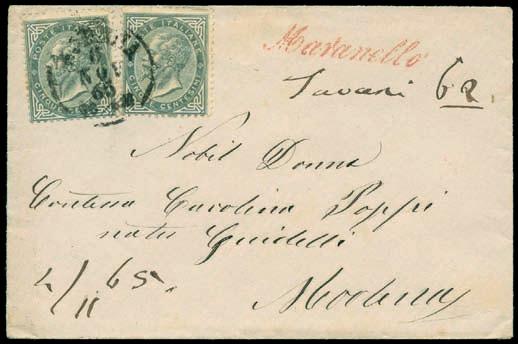 POSTE ITALIANE POSTE ITALIANE
CINQUE CENTESIMI
NOV
65
Maranello
62
Nobil Donna
Contessa Carolina Poppi
nata Guidelli
Modena
2/11 65.